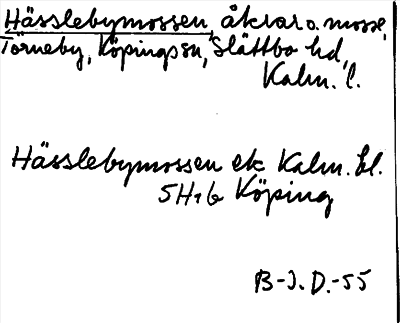 Hässlebymossen, åkrar o. mosse,
Törneby, Köpings sn, Slättbo hd,
Kalm. l.
Hässlebymossen ek Kalm. bl.
5H1b Köping
B-J.D.-55